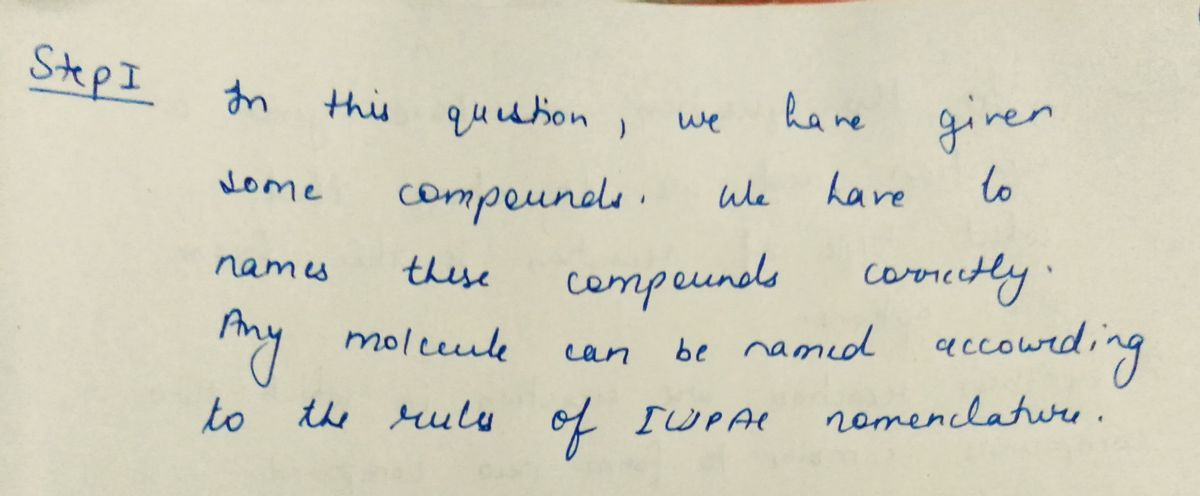 Step I
In this question, we have given
some compounds. We have to
names these compounds correctly.
Any molecule can be named accowding
to the rules of IUPAC nomenclature.